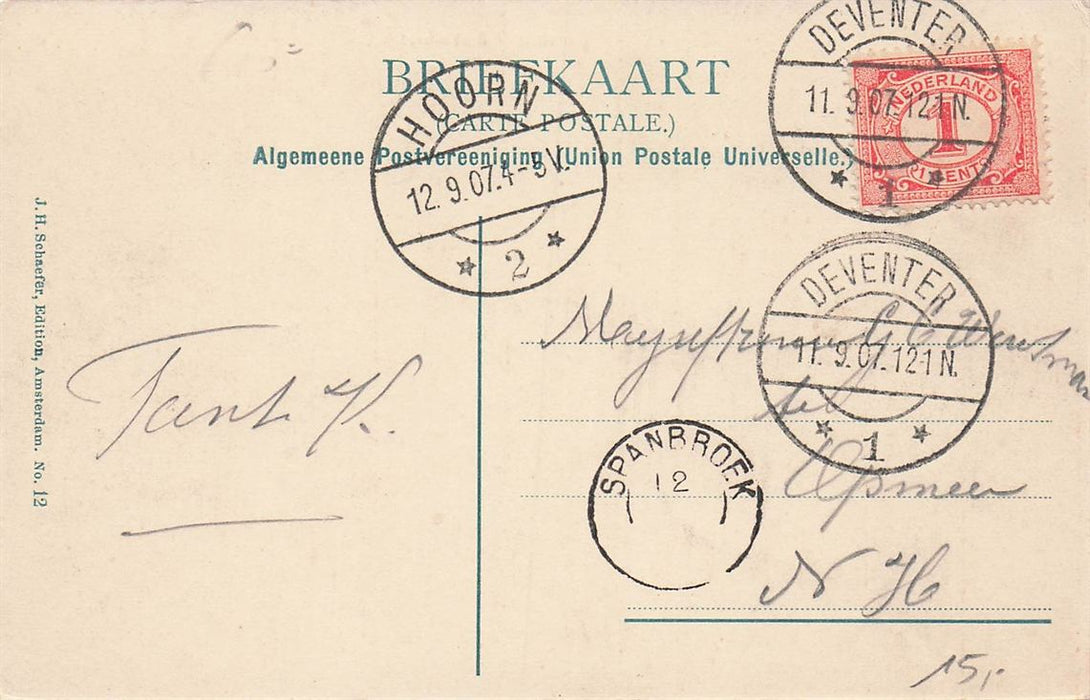 BRIEFKAART
(CARTE POSTALE.)
Algemeene Postvereeniging (Union Postale Universelle.)
HOORN
12. 9.07.4-5V.
2
DEVENTER
11. 9.07.121N.
1
NEDERLAND
1
1 CENT
DEVENTER
11. 9.07.121N.
1
J. H. Schaefer, Edition, Amsterdam. No. 12
Tante K.
Mejuffrouw G C
te
Opmeer
N H
SPANBROEK
12
15,-